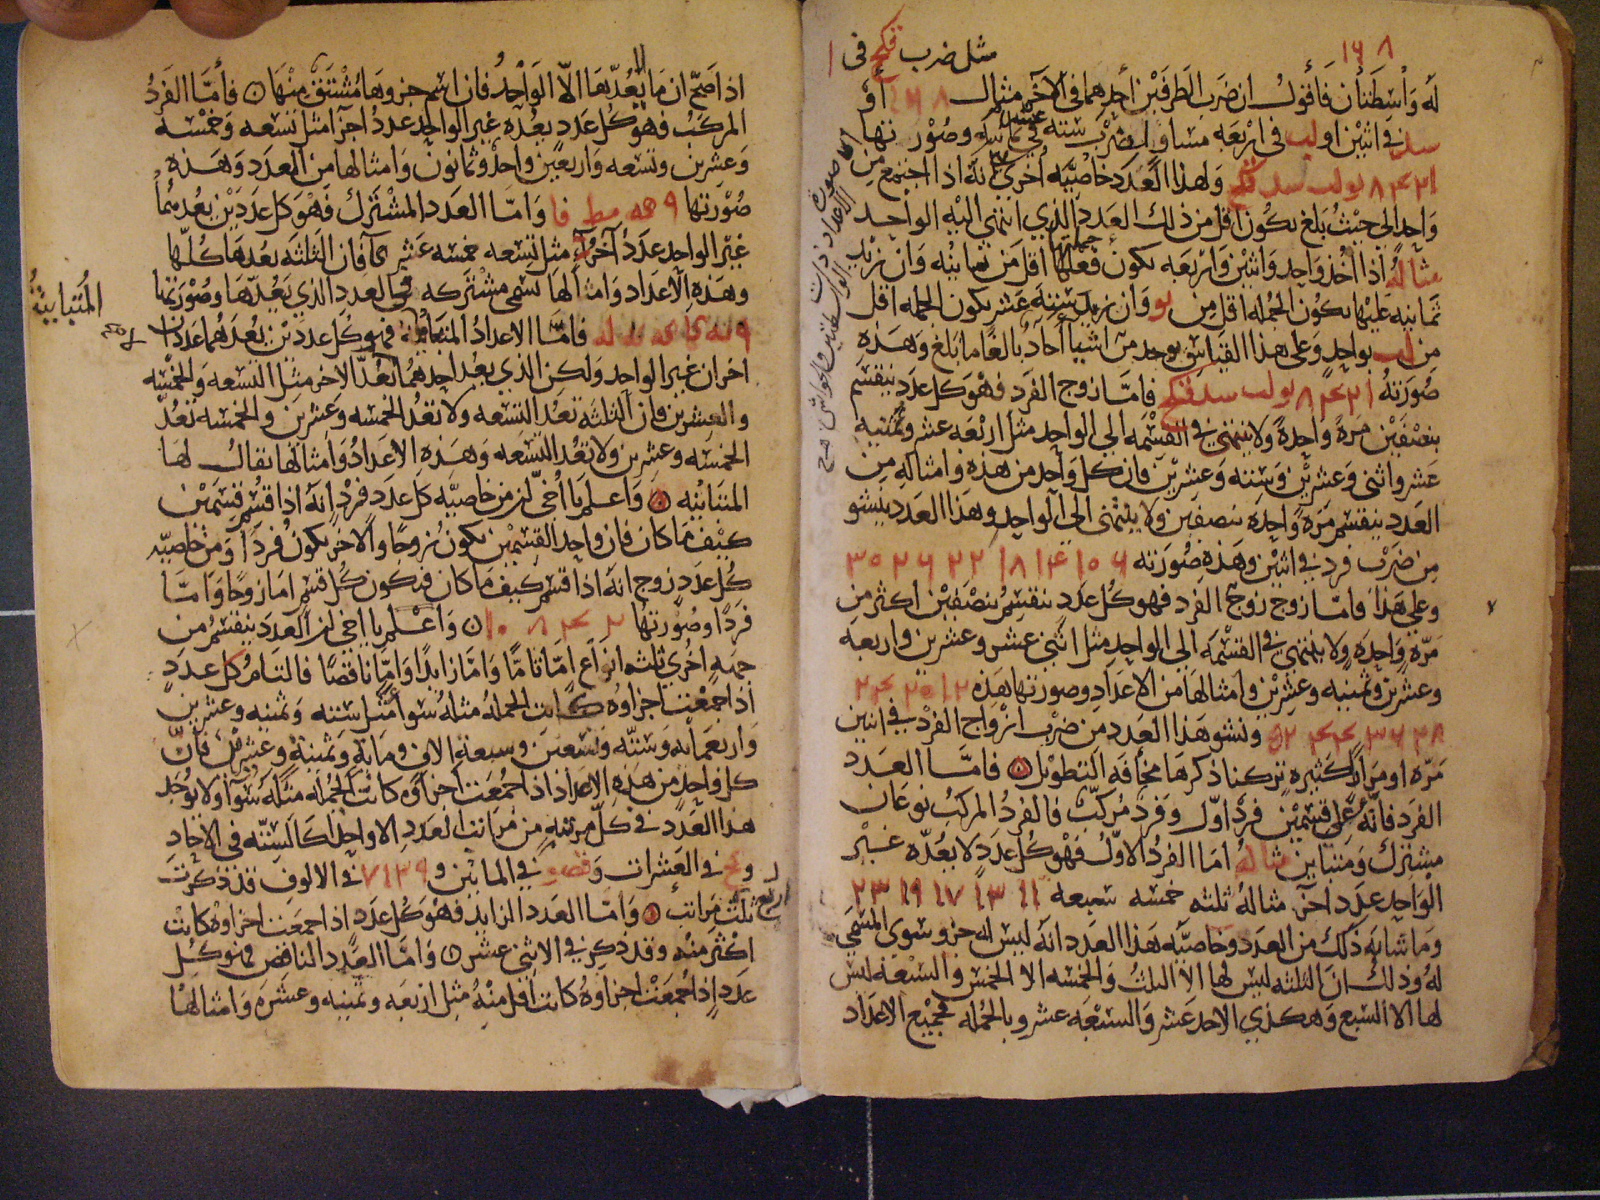 مثل ضرب قكح فى ا
٨ ١٦
له واسطتان فاقول ان ضرب الطرفين احدهما فى الآخر مثال ٨ ١٦ أو
سد في اثنين او لب في اربعه مساو لضرب سته عشر في ثمانيه وصورتها
ا ٢ ٤ ٨ يو لب سد قكح ولهذا العدد خاصيه اخرى انه اذا اجتمع من
واحد الى حيث بلغ يكون اقل من ذلك العدد الذي انتهى اليه الواحد
مثاله اذا أخذ واحد واثنين واربعه يكون جملتها اقل من ثمانيه وان زيد
ثمانيه عليها يكون الجمله اقل من يو وان زيد سته عشر يكون الجمله اقل
من لب بواحد وعلى هذا القياس يوجد من اشيا آحاد بالغا ما بلغ وهذه
صورته ا ٢ ٤ ٨ يو لب سد قكح فامّا زوج الفرد فهو كل عدد ينقسم
بنصفين مرة واحدة ولا ينتهى في القسمه الى الواحد مثل اربعه عشر وثمنيه
عشر واثنى وعشرين وسته وعشرين فان كل واحد من هذه وامثاله من
العدد ينقسم مرة واحده بنصفين ولا ينتهى الى الواحد وهذا العدد ينشو
من ضرب فرد في اثنين وهذه صورته ٦ ١٠ ١٤ ١٨ ٢٢ ٢٦ ٣٠
وعلى هذا فامّا زوج زوج الفرد فهو كل عدد ينقسم بنصفين اكثر من
مرّة واحده ولا ينتهي في القسمه الى الواحد مثل اثنى عشر وعشرين واربعه
وعشرين وثمنيه وعشرين وامثالها من الاعداد وصورتها هذه ١٢ ٢٠ ٢٤
٢٨ ٣٦ ٤٤ ٥٢ ونشو هذا العدد من ضرب ازواج الفرد في اثنين
مرّة او مرارا كثيره تركنا ذكرها مخافة التطويل فامّا العدد
الفرد فانّه على قسمين فرد اوّل وفرد مركب فالفرد المركب نوعان
مشترك ومتباين مثاله امّا الفرد الاوّل فهو كل عدد لا يعدّه غير
الواحد عدد آخر مثاله ثلثه خمسه سبعه ١١ ١٣ ١٧ ١٩ ٢٣
وما شابه ذلك من العدد وخاصيّة هذا العدد انّه ليس له جزو سوى المسمى
له وذلك ان الثلثه ليس لها الا الثلث والخمسه الا الخمس والسبعه ليس
لها الا السبع وهكذي الاحد عشر والسبعه عشر وبالجمله فجميع الاعداد
اذا صحّ ان ما يعدّها الّا الواحد فان اسم جزوها مشتق منها فأمّا الفرد
المركب فهو كل عدد يعده غير الواحد عدد اخر مثل تسعه وخمسه
وعشرين وتسعه واربعين واحد وثمانون وامثالها من العدد وهذه
صورتها ٩ كه مط فا وامّا العدد المشترك فهو كل عددين يعدهما
غير الواحد عدد آخر مثل تسعه خمسه عشر كا فان الثلثه يعدها كلّها
وهذه الاعداد وامثالها تسمى مشتركه في العدد الذي يعدّها وصورتها
فامّا الاعداد المتباينه فهو كل عددين يعدهما عددان
المتباينة
اخران غير الواحد ولكن الذي يعد احدهما لا يعدّ الاخر مثل التسعه والخمسه
والعشرين فان الثلثة تعد التسعه ولا تعد الخمسه وعشرين والخمسه تعدّ
الخمسه وعشرين ولا تعد التسعه وهذه الاعداد وامثالها يقال لها
المتباينه واعلم يا أخى ان من خاصيّه كل عدد فرد انّه اذا قسم قسمين
كيف ما كان فان واحد القسمين يكون زوجا والاخر يكون فردا ومن خاصيّه
كل عدد زوج انه اذا قسم كيف ما كان فيكون كل قسم اما زوجا وامّا
فردًا وصورتها ٢ ٤ ٨ ١٠ واعلم يا اخى ان العدد ينقسم من
جهة اخرى ثلثه انواع امّا تامّا وامّا زايدًا وامّا ناقصًا فالتام كل عدد
اذا جمعت اجزاوه كانت الجملة مثله سوا مثل سته وثمنيه وعشرين
واربعمايه وسته وتسعين وسبعة الاف وماية وثمنية وعشرين فانّ
كل واحد من هذه الاعداد اذا جمعت اجزاوه كانت الجملة مثله سوا ولا يوجد
هذا العدد في كل مرتبه من مراتب العدد الا واحدا كالسته في الاحاد
وكح في العشرات وتصو في المايتين و ٧١٢٩ في الالوف قد ذكرت
اربع
ثلث مراتب وامّا العدد الزايد فهو كل عدد اذا جمعت اجزاوه كانت
اكثر منه وقد ذكر في الاثنى عشر وامّا العدد الناقص فهو كل
عدد اذا جمعت اجزاوه كانت اقل منه مثل اربعه وثمنيه وعشره وامثالها